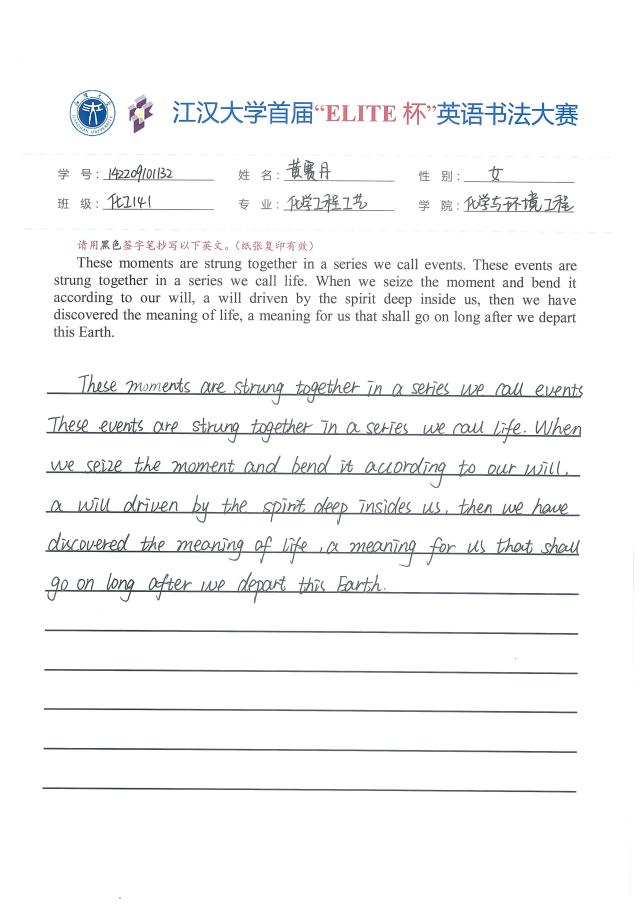 江汉大学首届“ELITE 杯”英语书法大赛
学 号: 142209101132 姓 名: 黄赛丹 性 别: 女
班 级: 化工141 专 业: 化学工程工艺 学 院: 化学与环境工程
请用黑色签字笔抄写以下英文。(纸张复印有效)
These moments are strung together in a series we call events. These events are
strung together in a series we call life. When we seize the moment and bend it
according to our will, a will driven by the spirit deep inside us, then we have
discovered the meaning of life, a meaning for us that shall go on long after we depart
this Earth.
These moments are strung together in a series we call events
These events are strung together in a series we call life. When
we seize the moment and bend it according to our will,
a will driven by the spirit deep insides us, then we have
discovered the meaning of life, a meaning for us that shall
go on long after we depart this Earth.